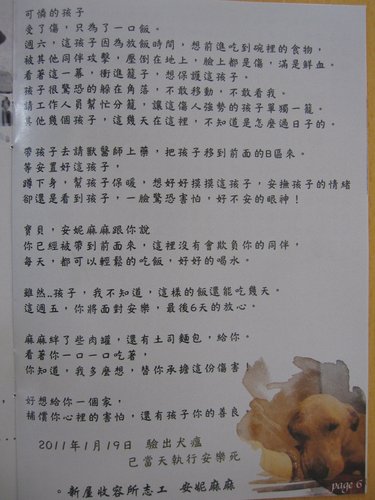 可憐的孩子
受了傷，只為了一口飯。
週六，這孩子因為放飯時間，想前進吃到碗裡的食物，
被其他同伴攻擊，壓倒在地上，臉上都是傷，滿是鮮血。
看著這一幕，衝進籠子，想保護這孩子。
孩子很驚恐的躲在角落，不敢移動，不敢看我。
請工作人員幫忙分籠，讓這傷人強勢的孩子單獨一籠。
其他幾個孩子，這幾天在這裡，不知道是怎麼過日子的。
帶孩子去請獸醫師上藥，把孩子移到前面的B區來。
等安置好這孩子，
蹲下身，幫孩子保暖，想好好摸摸這孩子，安撫孩子的情緒
卻還是看到孩子，一臉驚恐害怕，好不安的眼神！
寶貝，安妮麻麻跟你說
你已經被帶到前面來，這裡沒有會欺負你的同伴，
每天，都可以輕鬆的吃飯，好好的喝水。
雖然..孩子，我不知道，這樣的飯還能吃幾天。
這週五，你將面對安樂，最後6天的放心。
麻麻絆了些肉罐，還有土司麵包，給你。
看著你一口一口吃著，
你知道，我多麼想，替你承擔這份傷害！
好想給你一個家，
補償你心裡的害怕，還有孩子你的善良。
2011年1月19日 驗出犬瘟
已當天執行安樂死
。新屋收容所志工 安妮麻麻
page 6